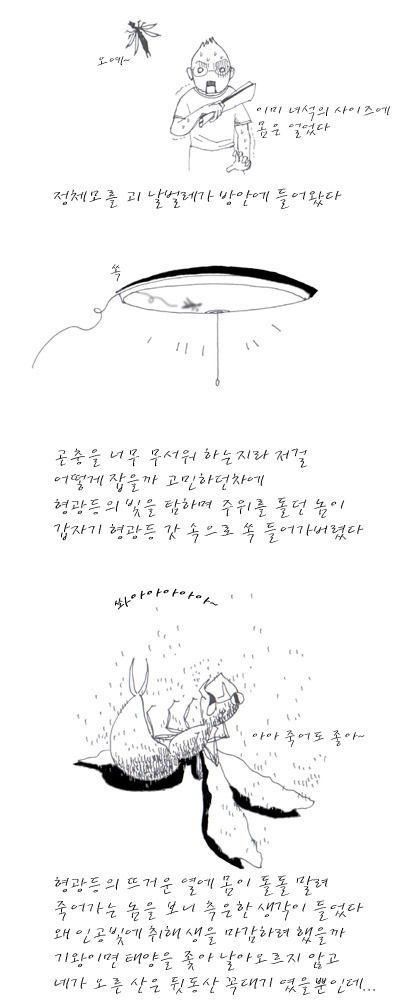 오예~
이미 녀석의 사이즈에
몸은 얼었다
정체모를 괴 날벌레가 방안에 들어왔다
쏙
곤충을 너무 무서워 하는지라 저걸
어떻게 잡을까 고민하던차에
형광등의 빛을 탐하며 주위를 돌던 놈이
갑자기 형광등 갓 속으로 쏙 들어가버렸다
쏴아아아아아아~
아아 죽어도 좋아~
형광등의 뜨거운 열에 몸이 돌돌 말려
죽어가는 놈을 보니 측은한 생각이 들었다
왜 인공빛에 취해 생을 마감하려 했을까
기왕이면 태양을 좇아 날아오르지 않고
네가 오른 산은 뒷동산 꼭대기 였을뿐인데...